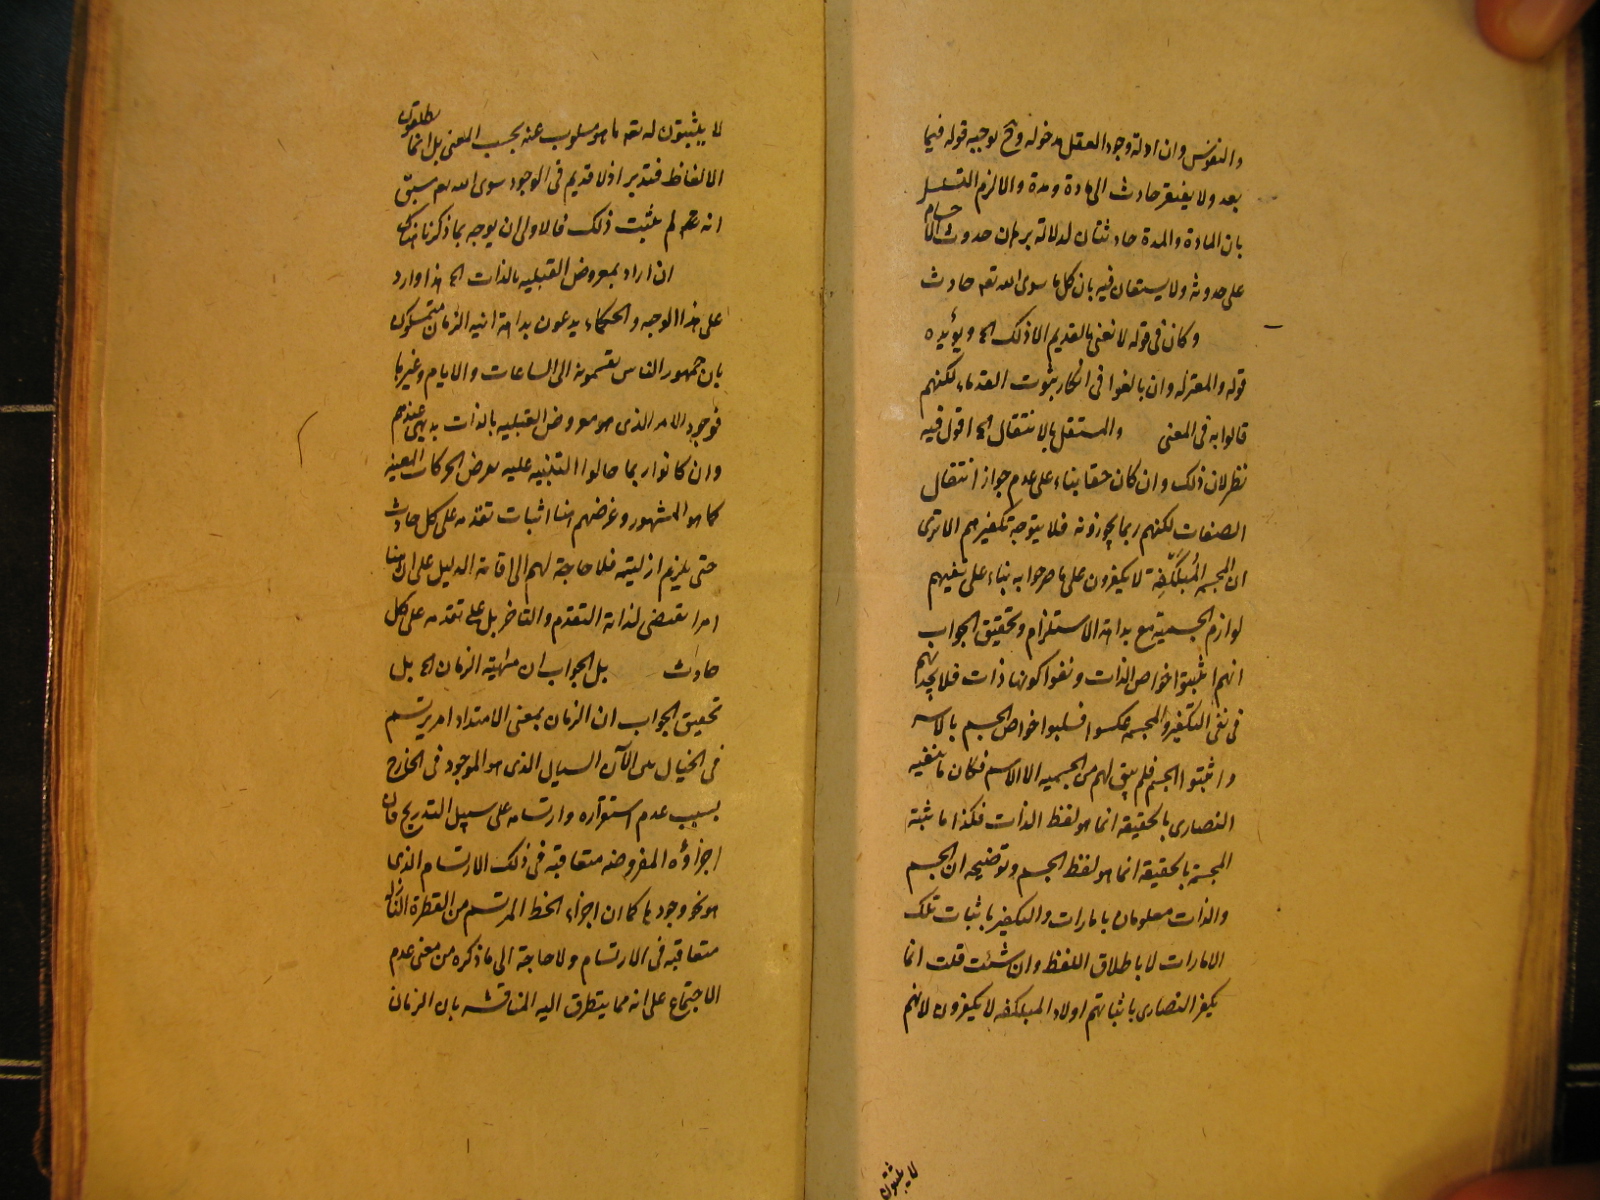 والنفوس وان ادلة وجود العقل مدخوله وح توجيه قوله فيما
بعد ولا يفتقر حادث الى مادة ومدة والا لزم التسلسل
بان المادة والمدة حادثتان لدلالة برهان حدوث الاجسام
على حدوثه ولا يستعان فيه بان كل ما سوى الله تعه حادث
وكان فى قوله لا نعنى بالقديم الا ذلك الخ ويؤيده
قوله والمعتزله وان بالغوا فى انكار ثبوت القدماء لكنهم
قالوا به فى المعنى والمستقل بالانتقال الخ اقول فيه
نظر لان ذلك وان كان حقا بناء على عدم جواز انتقال
الصفات لكنهم ربما يجوزونه فلا يتوجه تكفيرهم الا ترى
ان المجسمة المُبلكَفة لا يكفرون على ما صرحوا به بناء على نفيهم
لوازم الجسمية مع بداهة الاستلزام وتحقيق الجواب
انهم اثبتوا خواص الذات ونفوا كونها ذات فلا يجديهم
فى نفى التكفير والمجسمه عكسوا فسلبوا خواص الجسم بالاسر
واثبتوا الجسم فلم يبق لهم من الجسميه الا الاسم فكان ما تنفيه
النصارى بالحقيقة انما هو لفظ الذات فكذا ما تثبته
المجسمة بالحقيقة انما هو لفظ الجسم وتوضيحه ان الجسم
والذات معلومان بامارات والتكفير باثبات تلك
الامارات لا باطلاق اللفظ وان شئت قلت انما
يكفر النصارى باثباتهم اولا والمبلكفه لا يكفرون لانهم
لا يثبتون
لا يثبتون له تعه ما هو مسلوب عنه بحسب المعنى بل انما يطلقون
الالفاظ فتدبر اذ لا قديم فى الوجود سوى الله تعه سبق
انه لم يثبت ذلك فالاولى ان يوجه بما ذكرنا هناك
ان اراد بمعروض القبليه بالذات الخ هذا وارد
على هذا الوجه والحكماء يدعون بداهة انية الزمان متمسكون
بان جمهور الناس يقسمونه الى الساعات والايام وغيرها
فوجود الامر الذى هو معروض القبليه بالذات بديهى عندهم
وان كانوا ربما حالوا التنبيه عليه بعرض الحركات المعينه
كما هو المشهور وغرضهم هنا اثبات تقدمه على كل حادث
حتى يلزم ازليته فلا حاجة لهم الى اقامة الدليل على ان هنا
امرا يقتضى لذاته التقدم والتاخر بل على تقدمه على كل
حادث بل الجواب ان ماهية الزمان الخ بل
تحقيق الجواب ان الزمان بمعنى الامتداد امر يرتسم
فى الخيال من الآن السيال الذى هو الموجود فى الخارج
بسبب عدم استقراره وارتسامه على سبيل التدريج فان
اجزاؤه المفروضه متعاقبه فى ذلك الارتسام الذى
هو نحو وجودها كما ان اجزاء الخط المرتسم من القطرة النازلة
متعاقبه فى الارتسام ولا حاجة الى ما ذكره من معنى عدم
الاجتماع على انه مما يتطرق اليه المناقشه بان الزمان